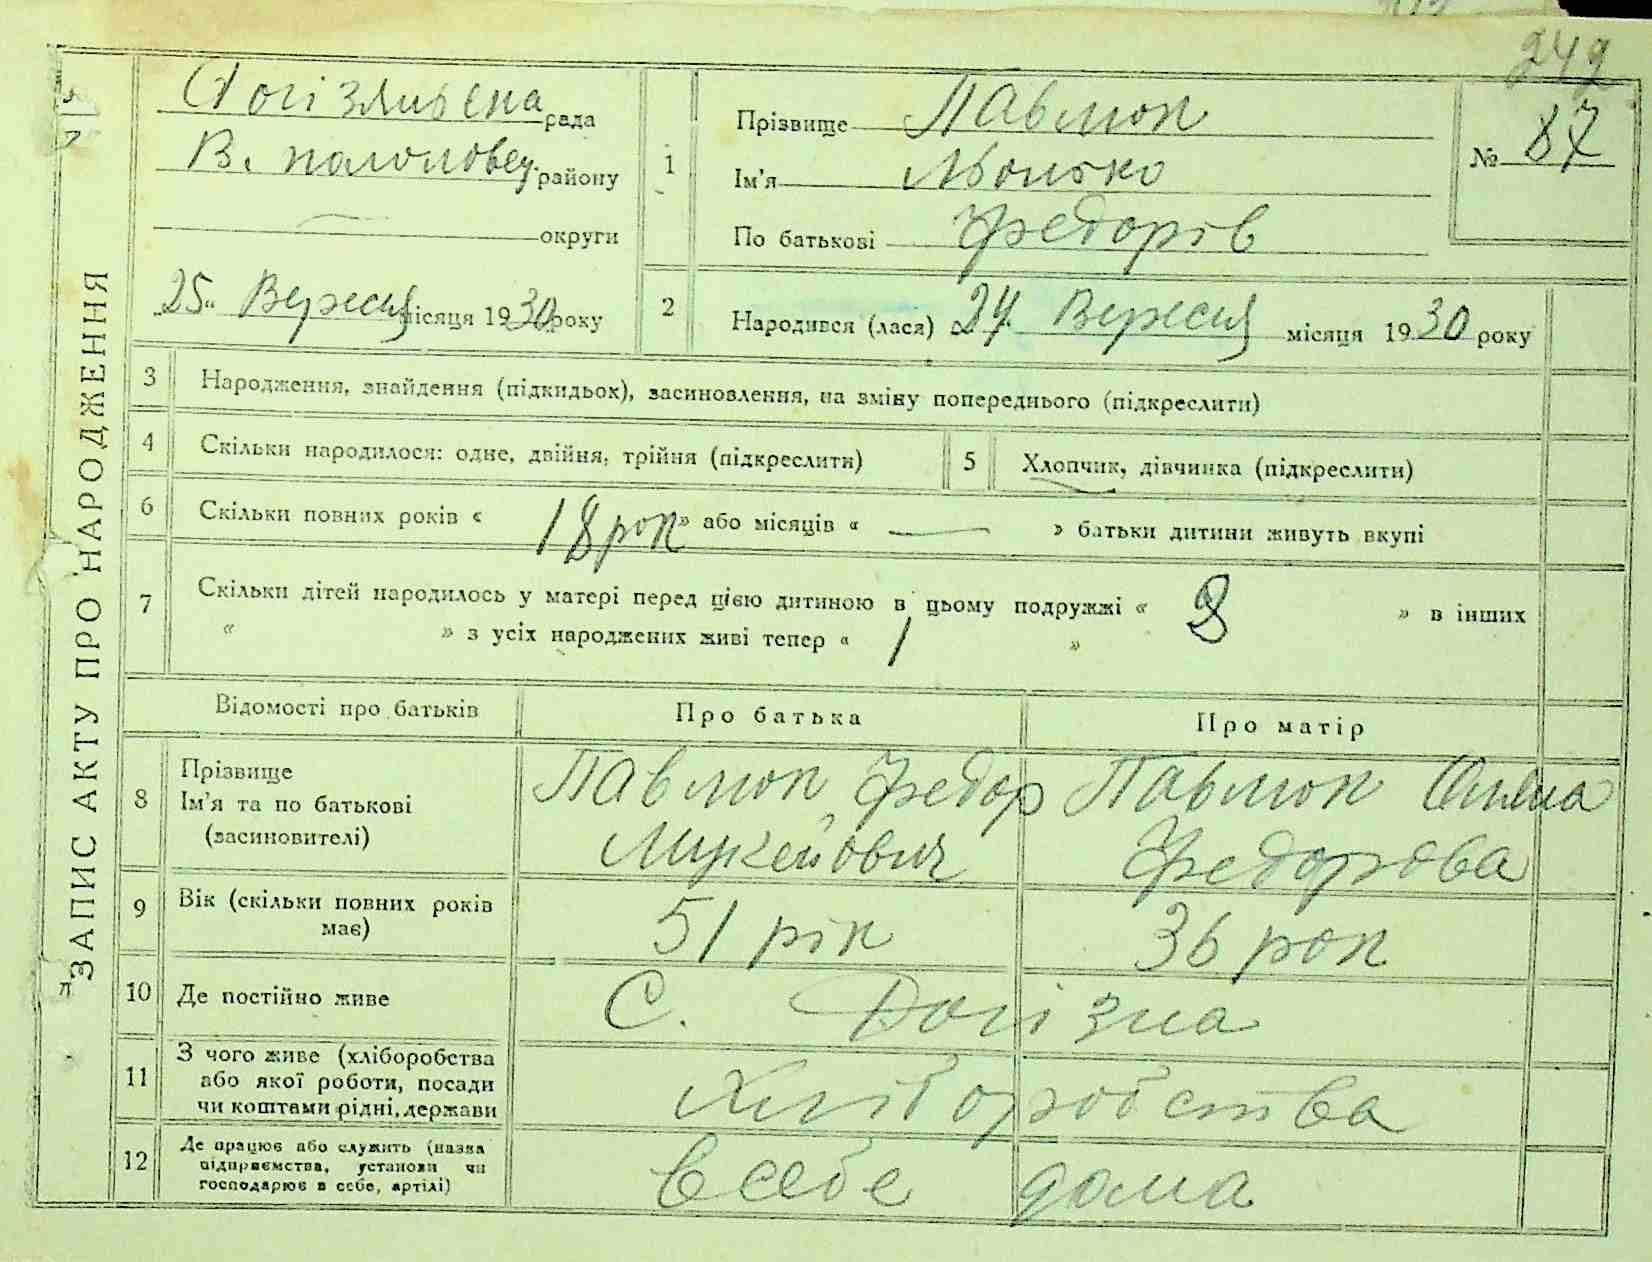 249
ЗАПИС АКТУ ПРО НАРОДЖЕННЯ
рада
В. половец. району
округи
25 " Вересня місяця 1930 року
1
Прізвище Павлюк
Ім'я
По батькові Федорів
№ 87
2
Народився (лася) 24 " Вересня місяця 1930 року
3 Народження, знайдення (підкидьох), засиновлення, на зміну попереднього (підкреслити)
4 Скільки народилося: одне, двійня, трійня (підкреслити)
5 Хлопчик, дівчинка (підкреслити)
6 Скільки повних років « 18 рок » або місяців « — » батьки дитини живуть вкупі
7 Скільки дітей народилось у матері перед цією дитиною в цьому подружжі « 8 » в інших
« » з усіх народжених живі тепер « 1 »
Відомості про батьків Про батька Про матір
8 Прізвище
Ім'я та по батькові
(засиновителі)
Павлюк Федор
Мукейович
Павлюк
Федорова
9 Вік (скільки повних років
має)
51 рік 36 рок
10 Де постійно живе С. Логізна
11 З чого живе (хліборобства
або якої роботи, посади
чи коштами рідні, держави
Хліборобства
12 Де працює або служить (назва
підприємства, установи чи
господарює в себе, артілі)
в себе дома